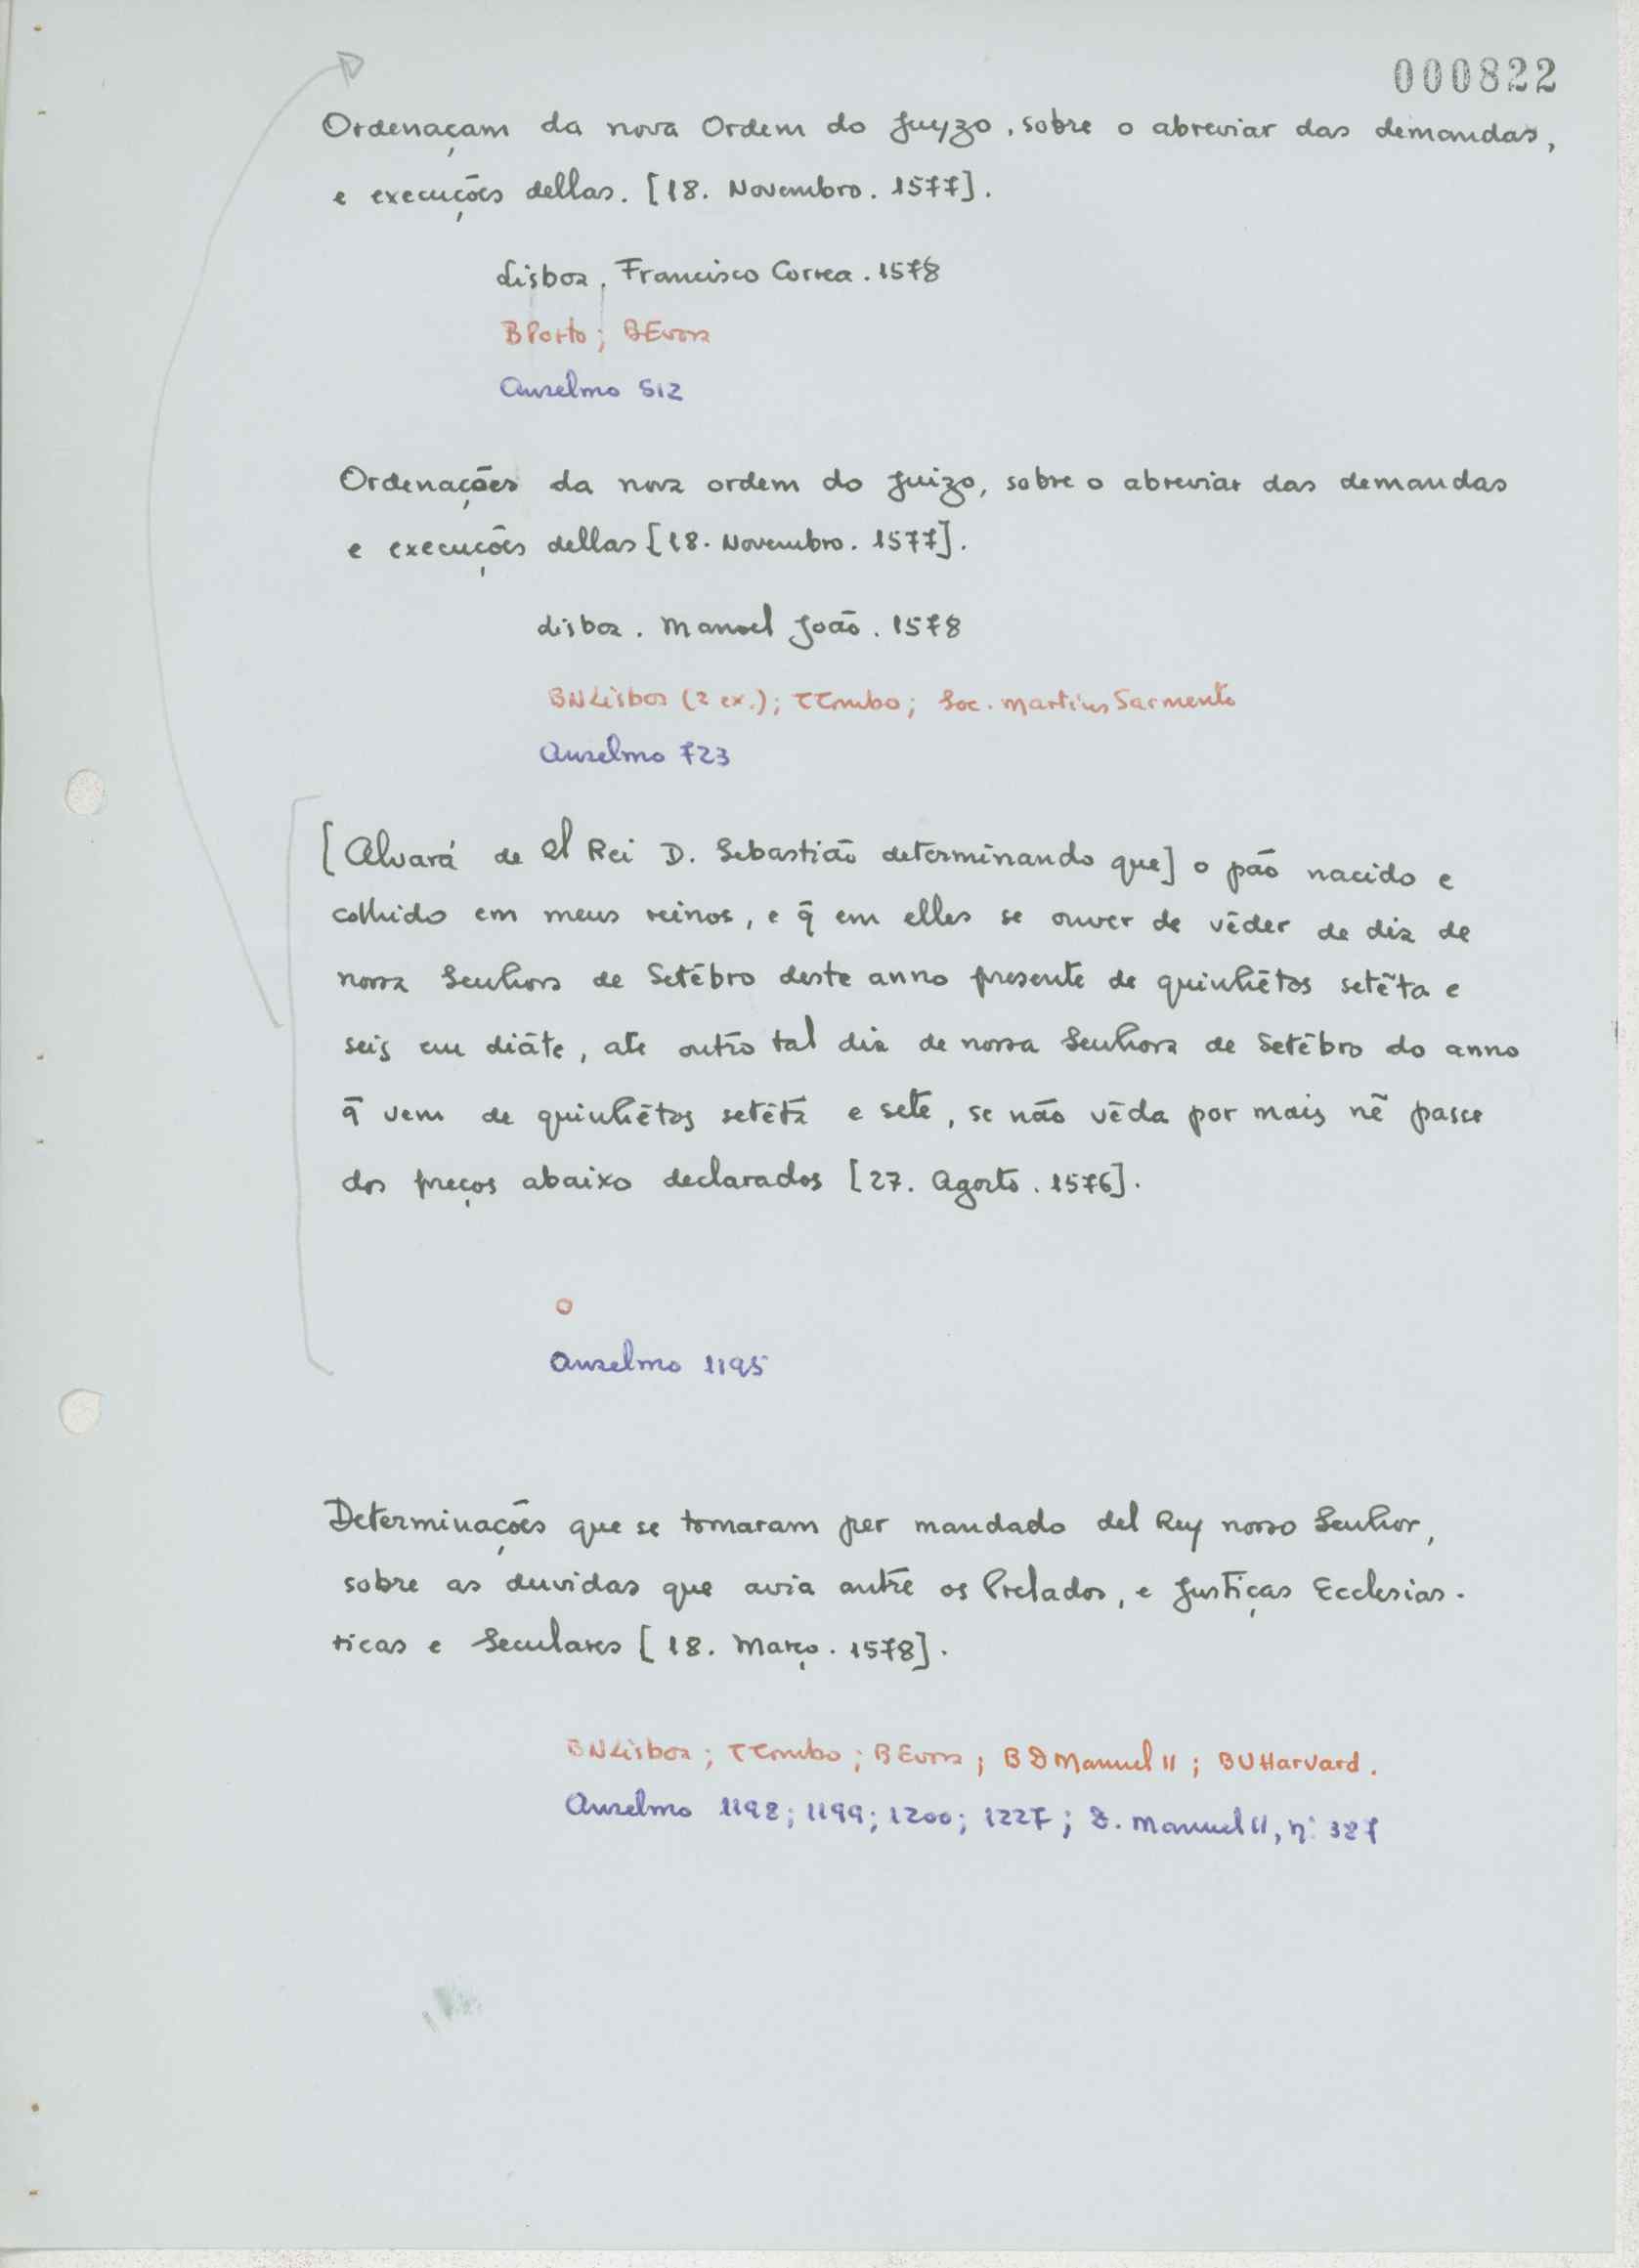 000822
Ordenaçam da nova Ordem do Juyzo, sobre o abreviar das demandas,
e execuções dellas. [18. Novembro. 1577].
Lisboa. Francisco Correa. 1578
BPorto; BEvora
Anselmo 512
Ordenações da nova ordem do Juizo, sobre o abreviar das demandas
e execuções dellas [18. Novembro. 1577].
Lisboa. Manoel João. 1578
BNLisboa (2 ex.); TTombo; Soc. Martins Sarmento
Anselmo 723
[Alvará de El Rei D. Sebastião determinando que] o pão nacido e
colhido em meus reinos, e q̃ em elles se ouver de vēder de dia de
nossa Senhora de Setēbro deste anno presente de quinhētos setēta e
seis em diāte, ate outro tal dia de nossa Senhora de Setēbro do anno
q̄ vem de quinhētos setēta e sete, se não vēda por mais nē passe
dos preços abaixo declarados [27. Agosto. 1576].
O
Anselmo 1195
Determinações que se tomaram per mandado del Rey nosso Senhor,
sobre as duvidas que avia antre os Prelados, e Justiças Ecclesias-
ticas e Seculares [18. Março. 1578].
BNLisboa; TTombo; BEvora; BDManuel II; BUHarvard.
Anselmo 1198; 1199; 1200; 1227; D. Manuel II, nº 327